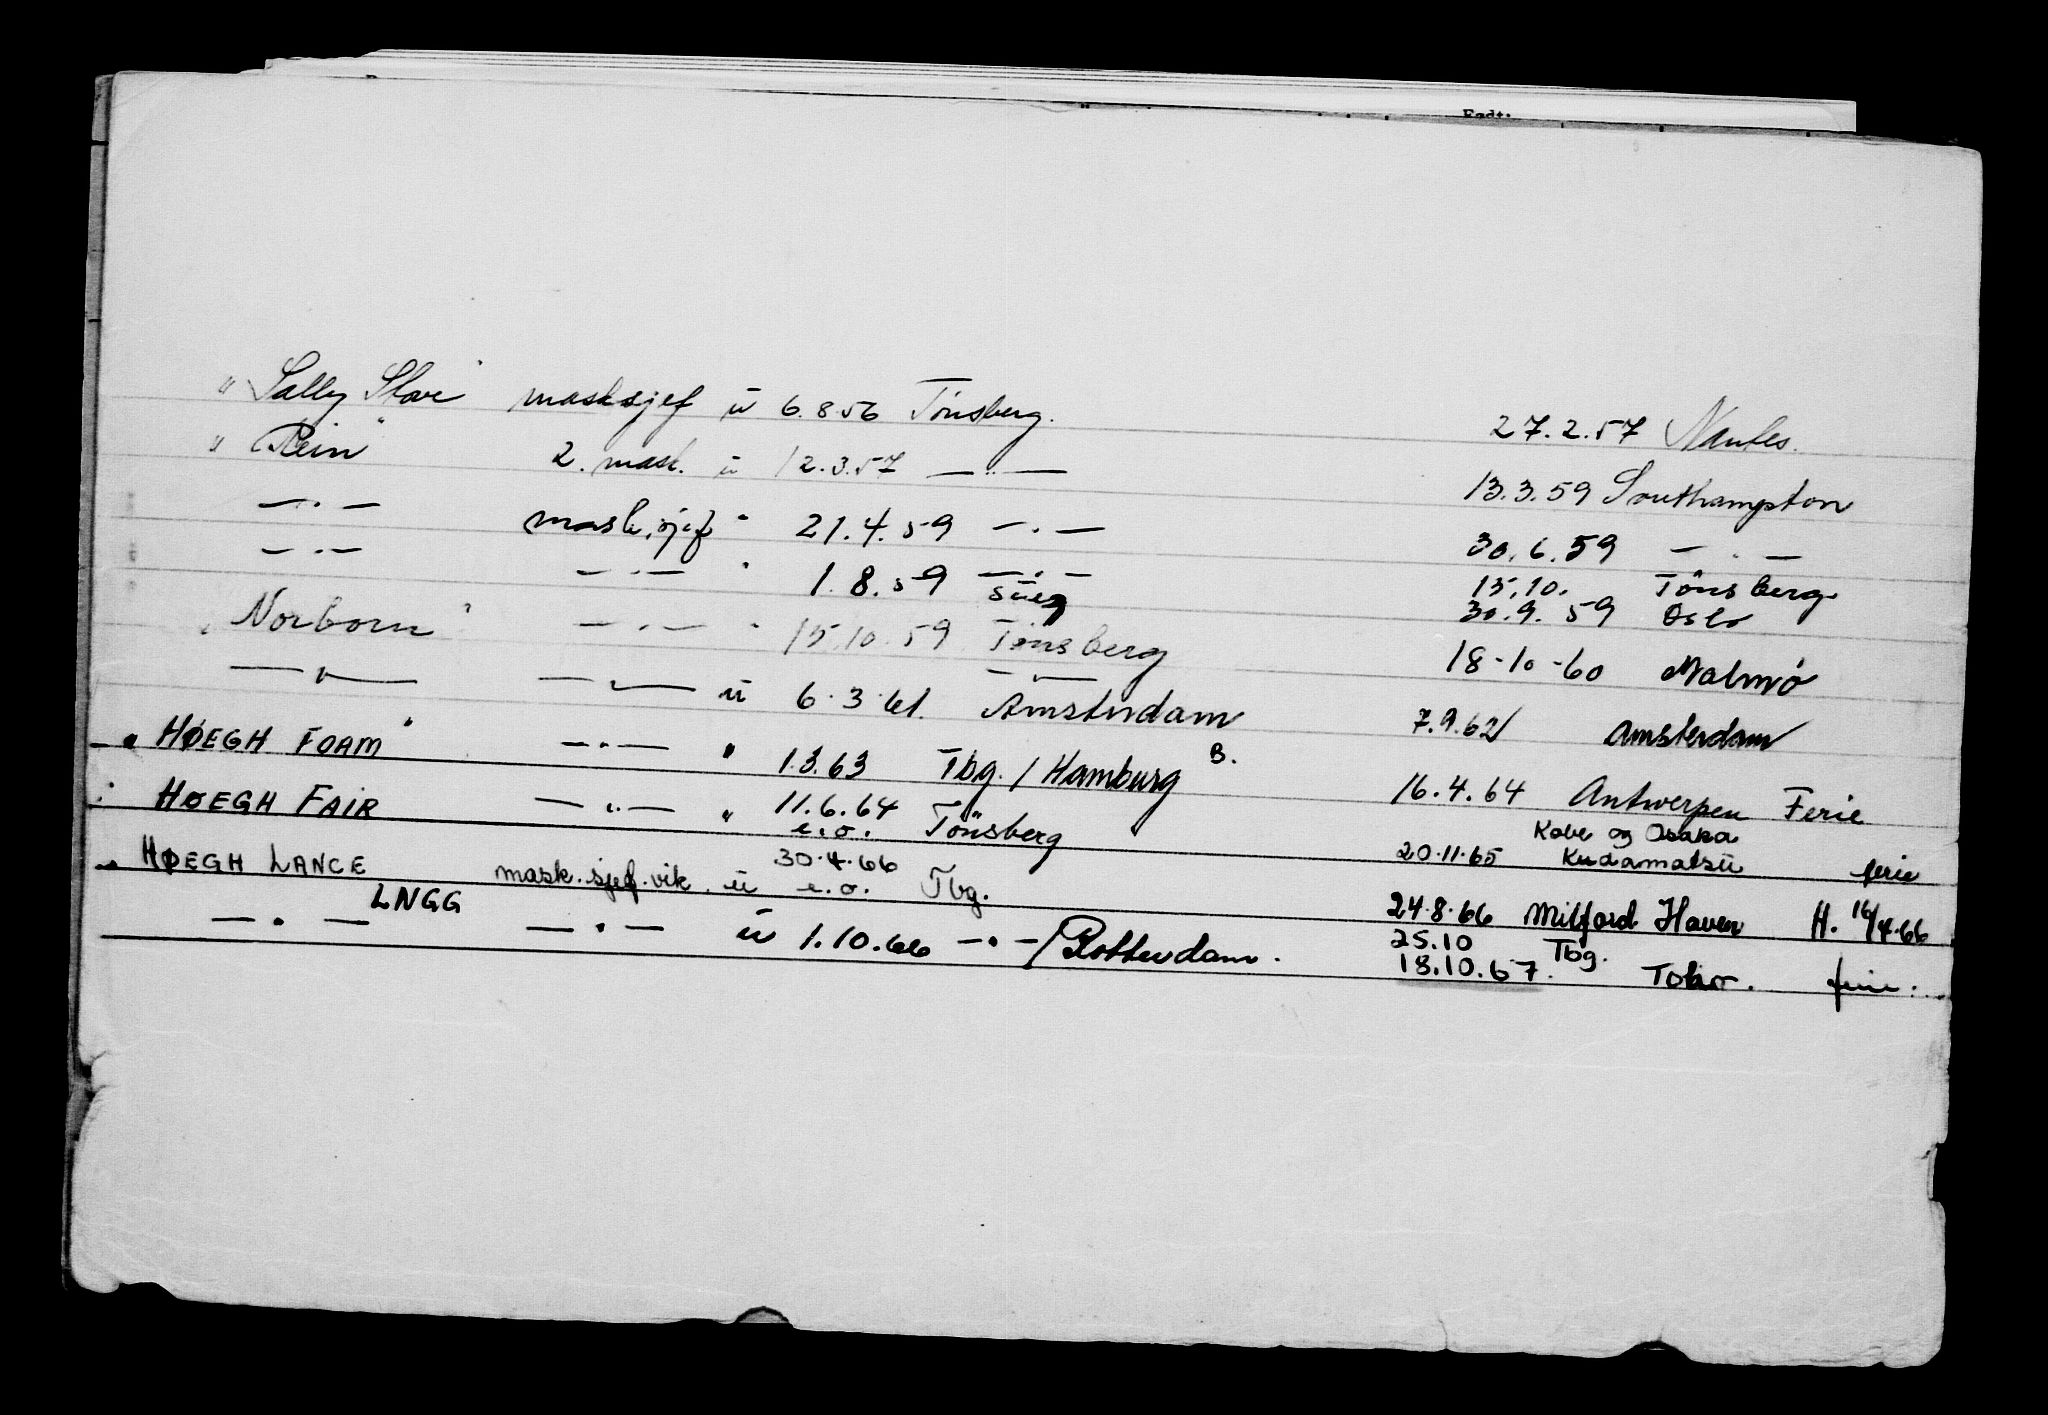 Født:
" Sally Stove " mask.sjef ü 6.8.56 Tönsberg. 27.2.57 Nantes.
" Rein " 2. mask. ü 12.3.57 — " — 13.3.59 Southampton
— " — mask.sjef " 21.4.59 — " — 30.6.59 — " —
— " — — " — " 1.8.59 — " — 15.10. Tönsberg
Suez 30.9.59 Oslo
" Norborn " — " — " 15.10.59 Tönsberg 18-10-60 Malmö
— " — — " — ü 6.3.61. Amsterdam 7.9.62 Amsterdam
" HØEGH FOAM " — " — " 1.3.63 Tbg. / Hamburg B. 16.4.64 Antwerpen Ferie
" HØEGH FAIR — " — " 11.6.64 e.o. Tönsberg Kobe og Osaka
20.11.65 Kudamatsu ferie
" HØEGH LANCE mask.sjef.vik. ü 30.4.66 e.o. Tbg. 24.8.66 Milford Haven H. 16/4.66
LNGG
— " — — " — ü 1.10.66 — " — / Rotterdam. 25.10 Tbg.
18.10.67. ferie.